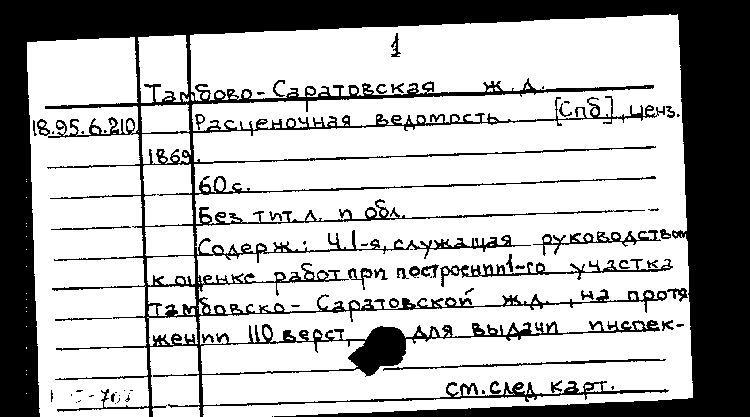 1
Тамбово-Саратовская ж.д.
18.95.6.210 Расценочная ведомость. [Спб.], ценз.
1869.
60 с.
Без тит. л. и обл.
Содерж.: Ч.1-я, служащая руководством
к оценке работ при построении 1-го участка
Тамбовско-Саратовской ж.д., на протя
жении 110 верст, для выдачи инспек-
см. след. карт.